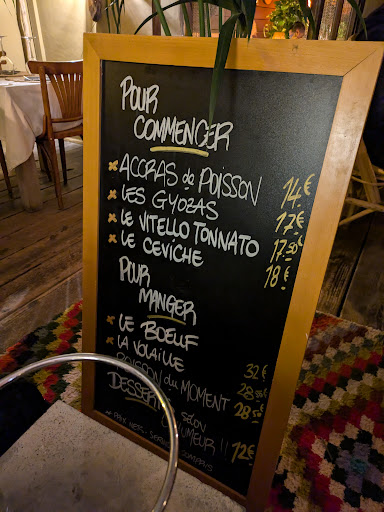 POUR
COMMENCER
x ACCRAS de POISSON 14€
x LES GYOZAS 17€
x LE VITELLO TONNATO 17.50€
x LE CEVICHE 18€
POUR
MANGER
x LE BOEUF 32€
x LA VOLAILLE 28.50€
POISSON du MOMENT 28.50€
DESSERT selon
HUMEUR!! 12€
* PRIX NETS - SERVICE COMPRIS